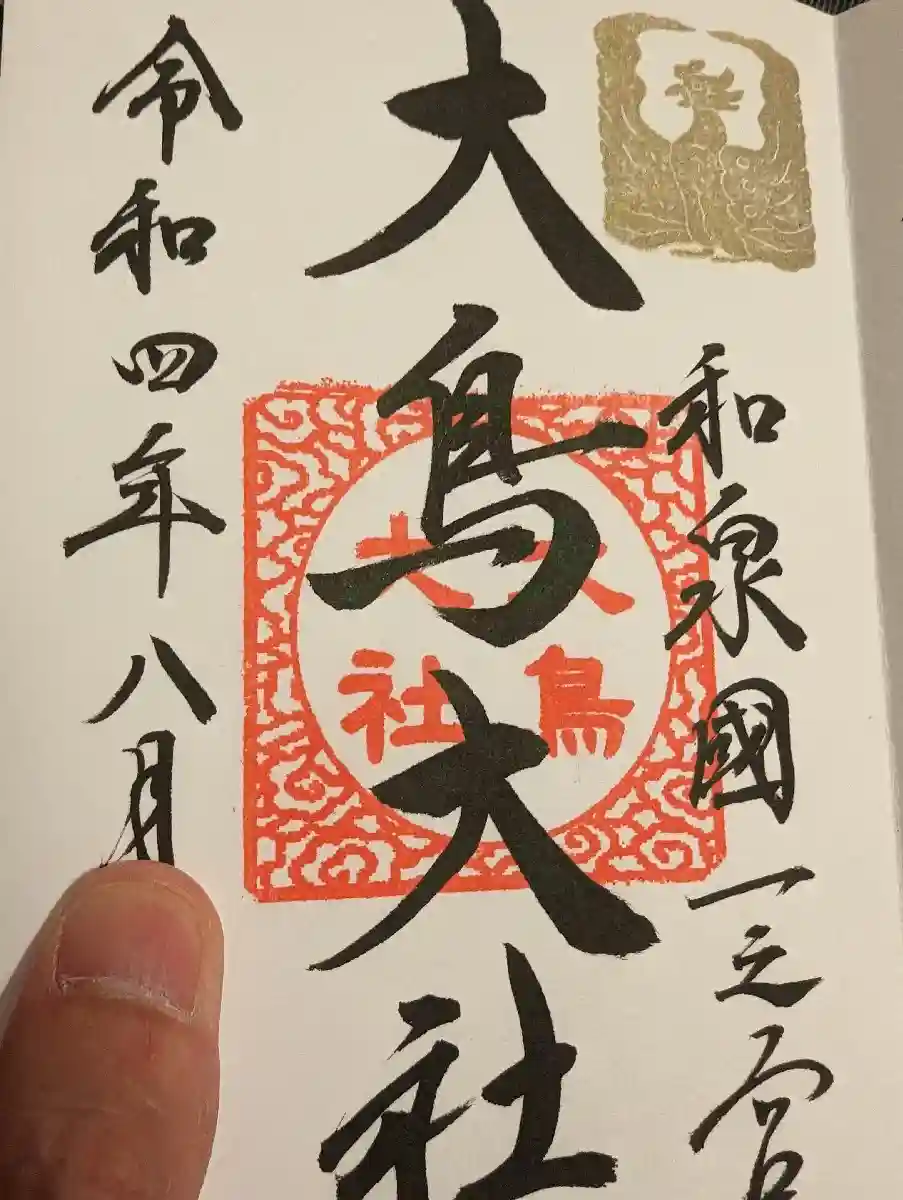 和泉國一之宮
大鳥大社
大鳥
大社
令和四年八月